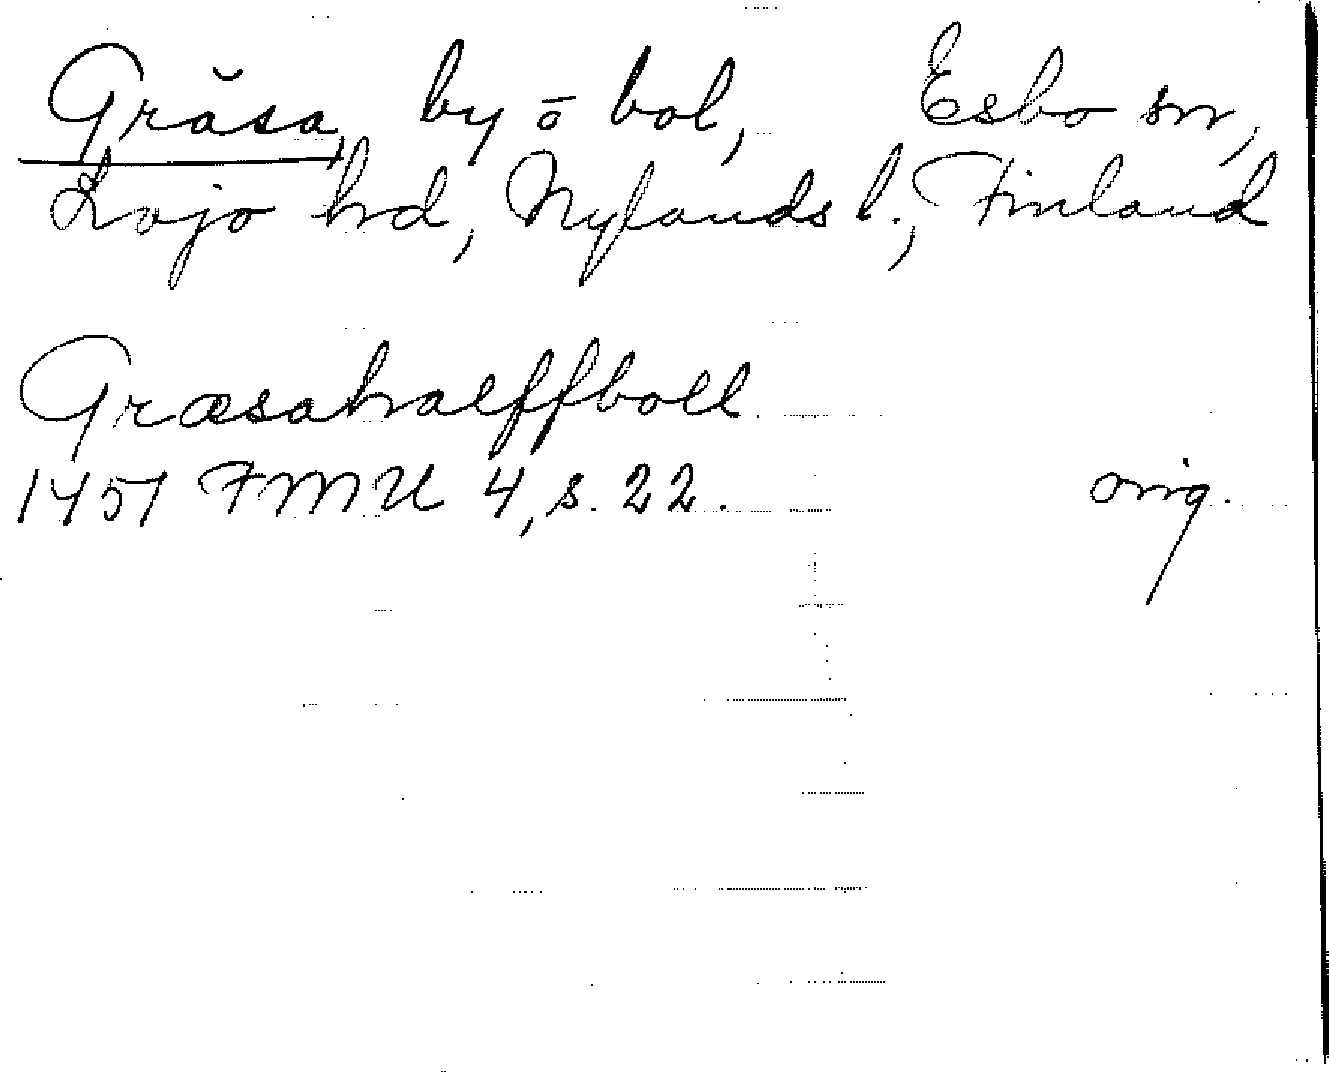 Gräsa, by o bol, Esbo sn,
Lojo hd, Nylands l., Finland
Græsahalffboll
1451 FMU 4, s. 22. orig.